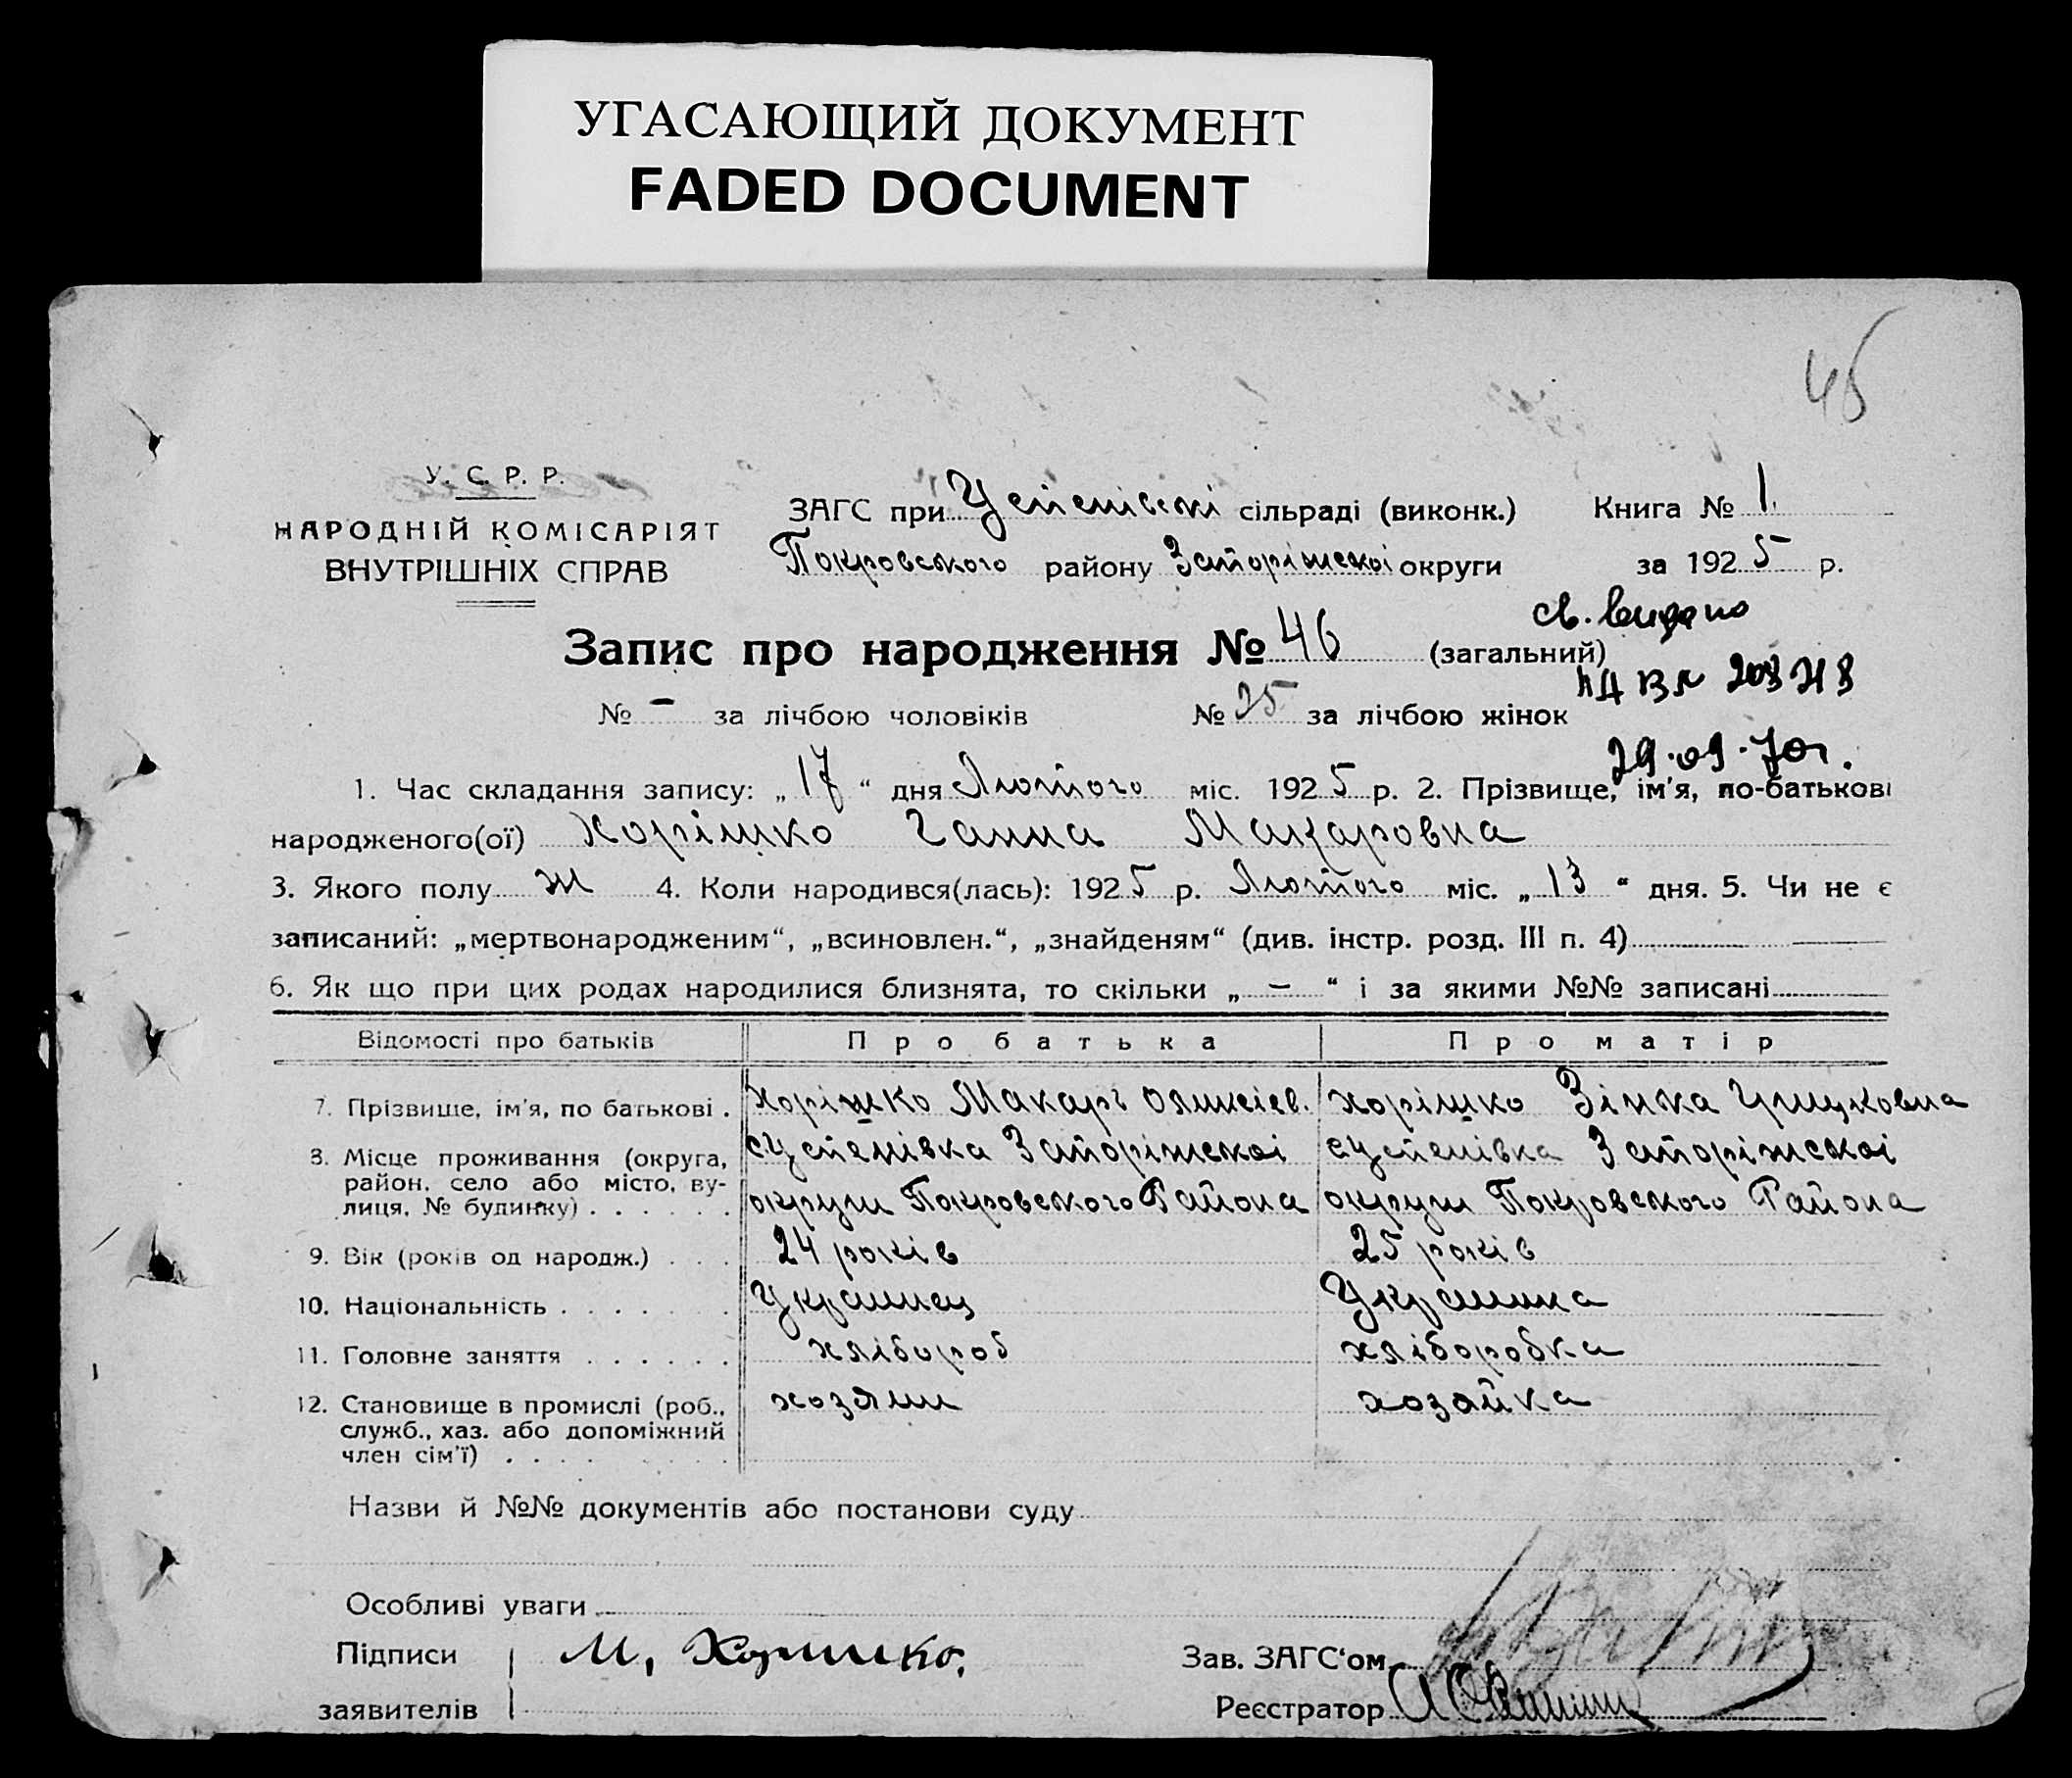 УГАСАЮЩИЙ ДОКУМЕНТ
FADED DOCUMENT
46
У. С. Р. Р.
НАРОДНІЙ КОМІСАРІЯТ
ВНУТРІШНІХ СПРАВ
ЗАГС при Успенівскі сільраді (виконк.) Книга № 1.
Покровського району Запоріжскоі округи за 1925 р.
св. видано
Запис про народження № 46 (загальний)
208218
№ - за лічбою чоловіків № 25 за лічбою жінок
29.09.70г.
1. Час складання запису: „17“ дня Лютого міс. 1925 р. 2. Прізвище, ім'я, по-батькові
народженого(ої) Хорішко Ганна Макаровна
3. Якого полу ж 4. Коли народився(лась): 1925 р. Лютого міс. „13“ дня. 5. Чи не є
записаний: „мертвонародженим“, „всиновлен.“, „знайденям“ (див. інстр. розд. III п. 4)
6. Як що при цих родах народилися близнята, то скільки „-“ і за якими №№ записані
Відомості про батьків Про батька Про матір
7. Прізвище, ім'я, по батькові . Хорішко Макаръ Олексієв. Хорішко Зінка Грицковна
8. Місце проживання (округа, район, село або місто, вулиця, № будинку) . . . . . .
с Успенівка Запоріжскоі с Успенівка Запоріжскоі
округи Покровского Района округи Покровского Района
9. Вік (років од народж.) . . . 24 років 25 років
10. Національність . . . . . . Украинец Украинка
11. Головне заняття . . . . . . хлібороб хліборобка
12. Становище в промислі (роб., хозяин хозайка
служб., хаз. або допоміжний
член сім'ї) . . . .
Назви й №№ документів або постанови суду
Особливі уваги
Підписи М, Хоришко. Зав. ЗАГС'ом
заявителів Реєстратор